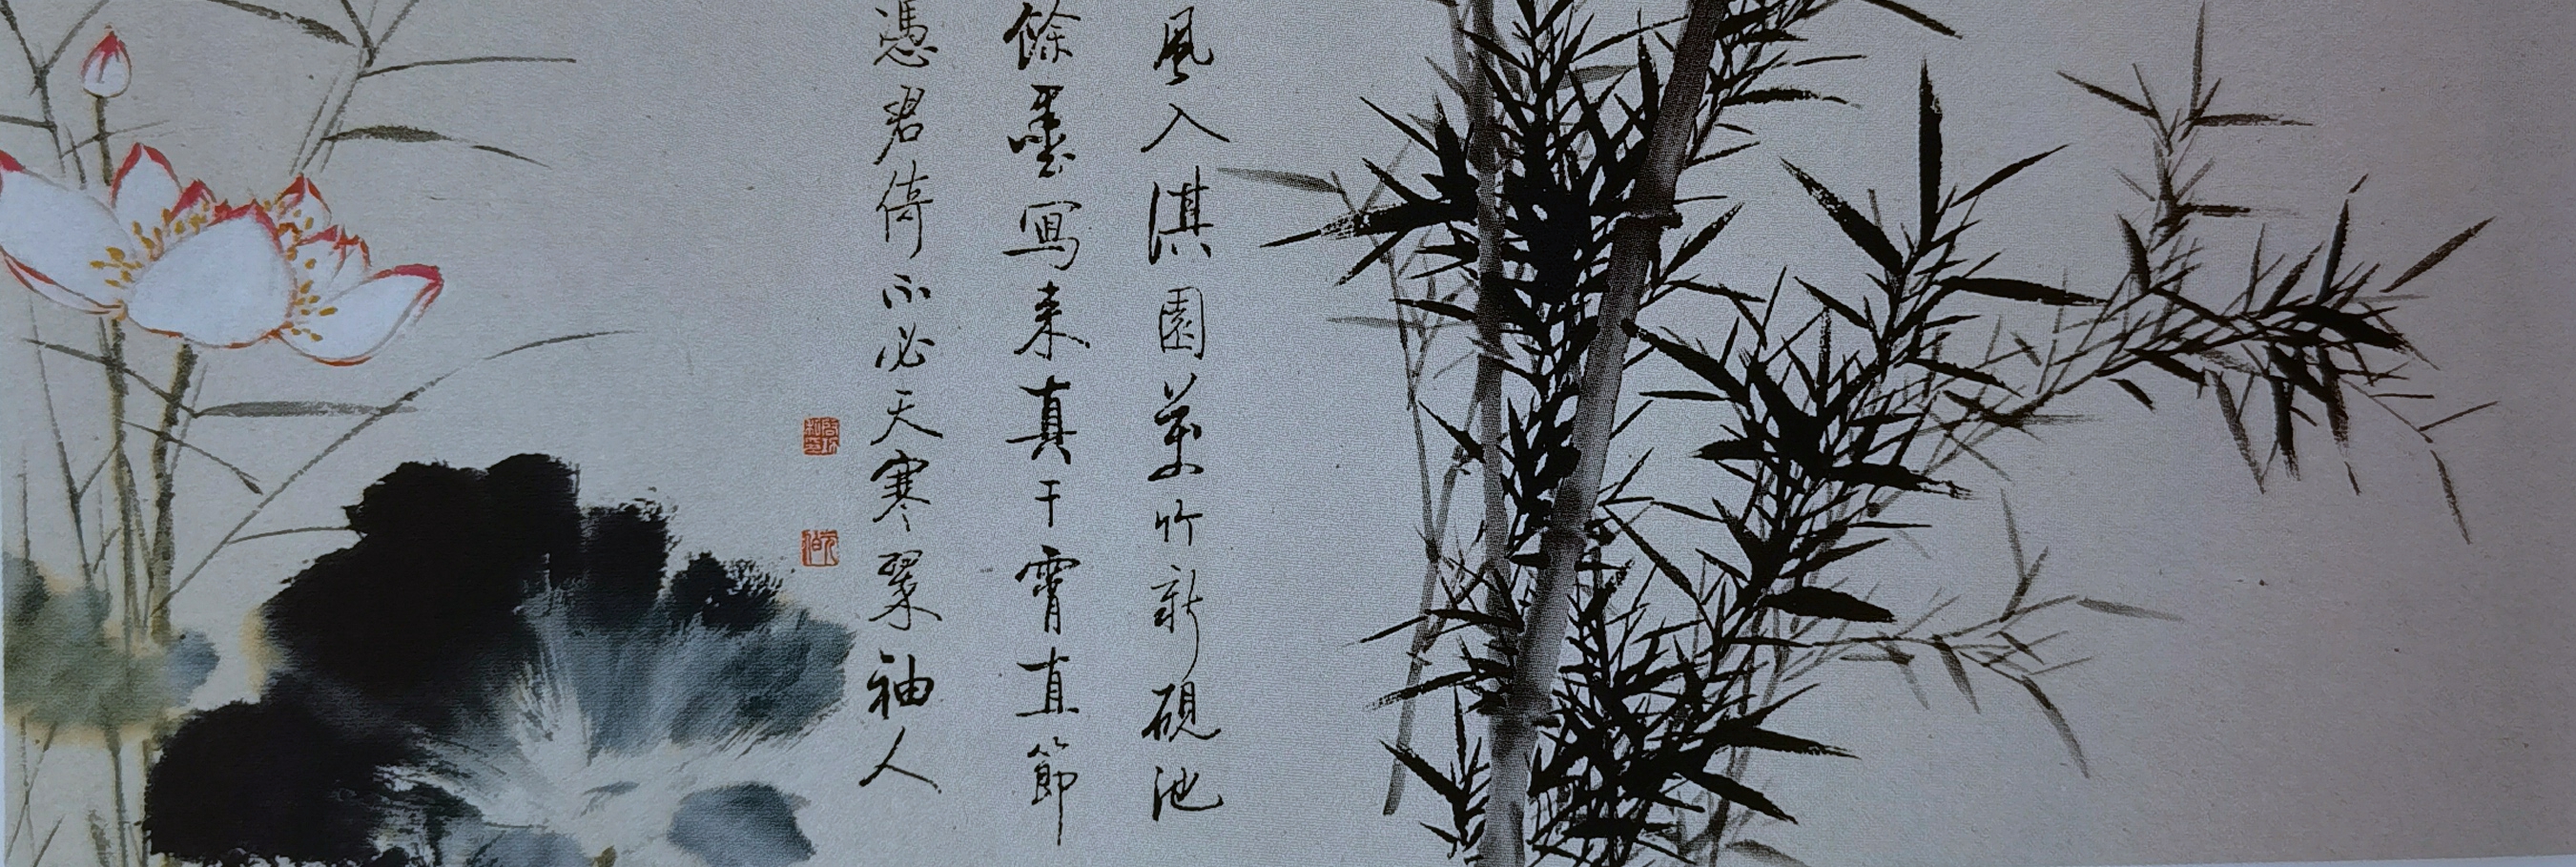 風入淇園萬竹新硯池
餘墨寫来真干霄直節
憑君倚不必天寒翠袖人